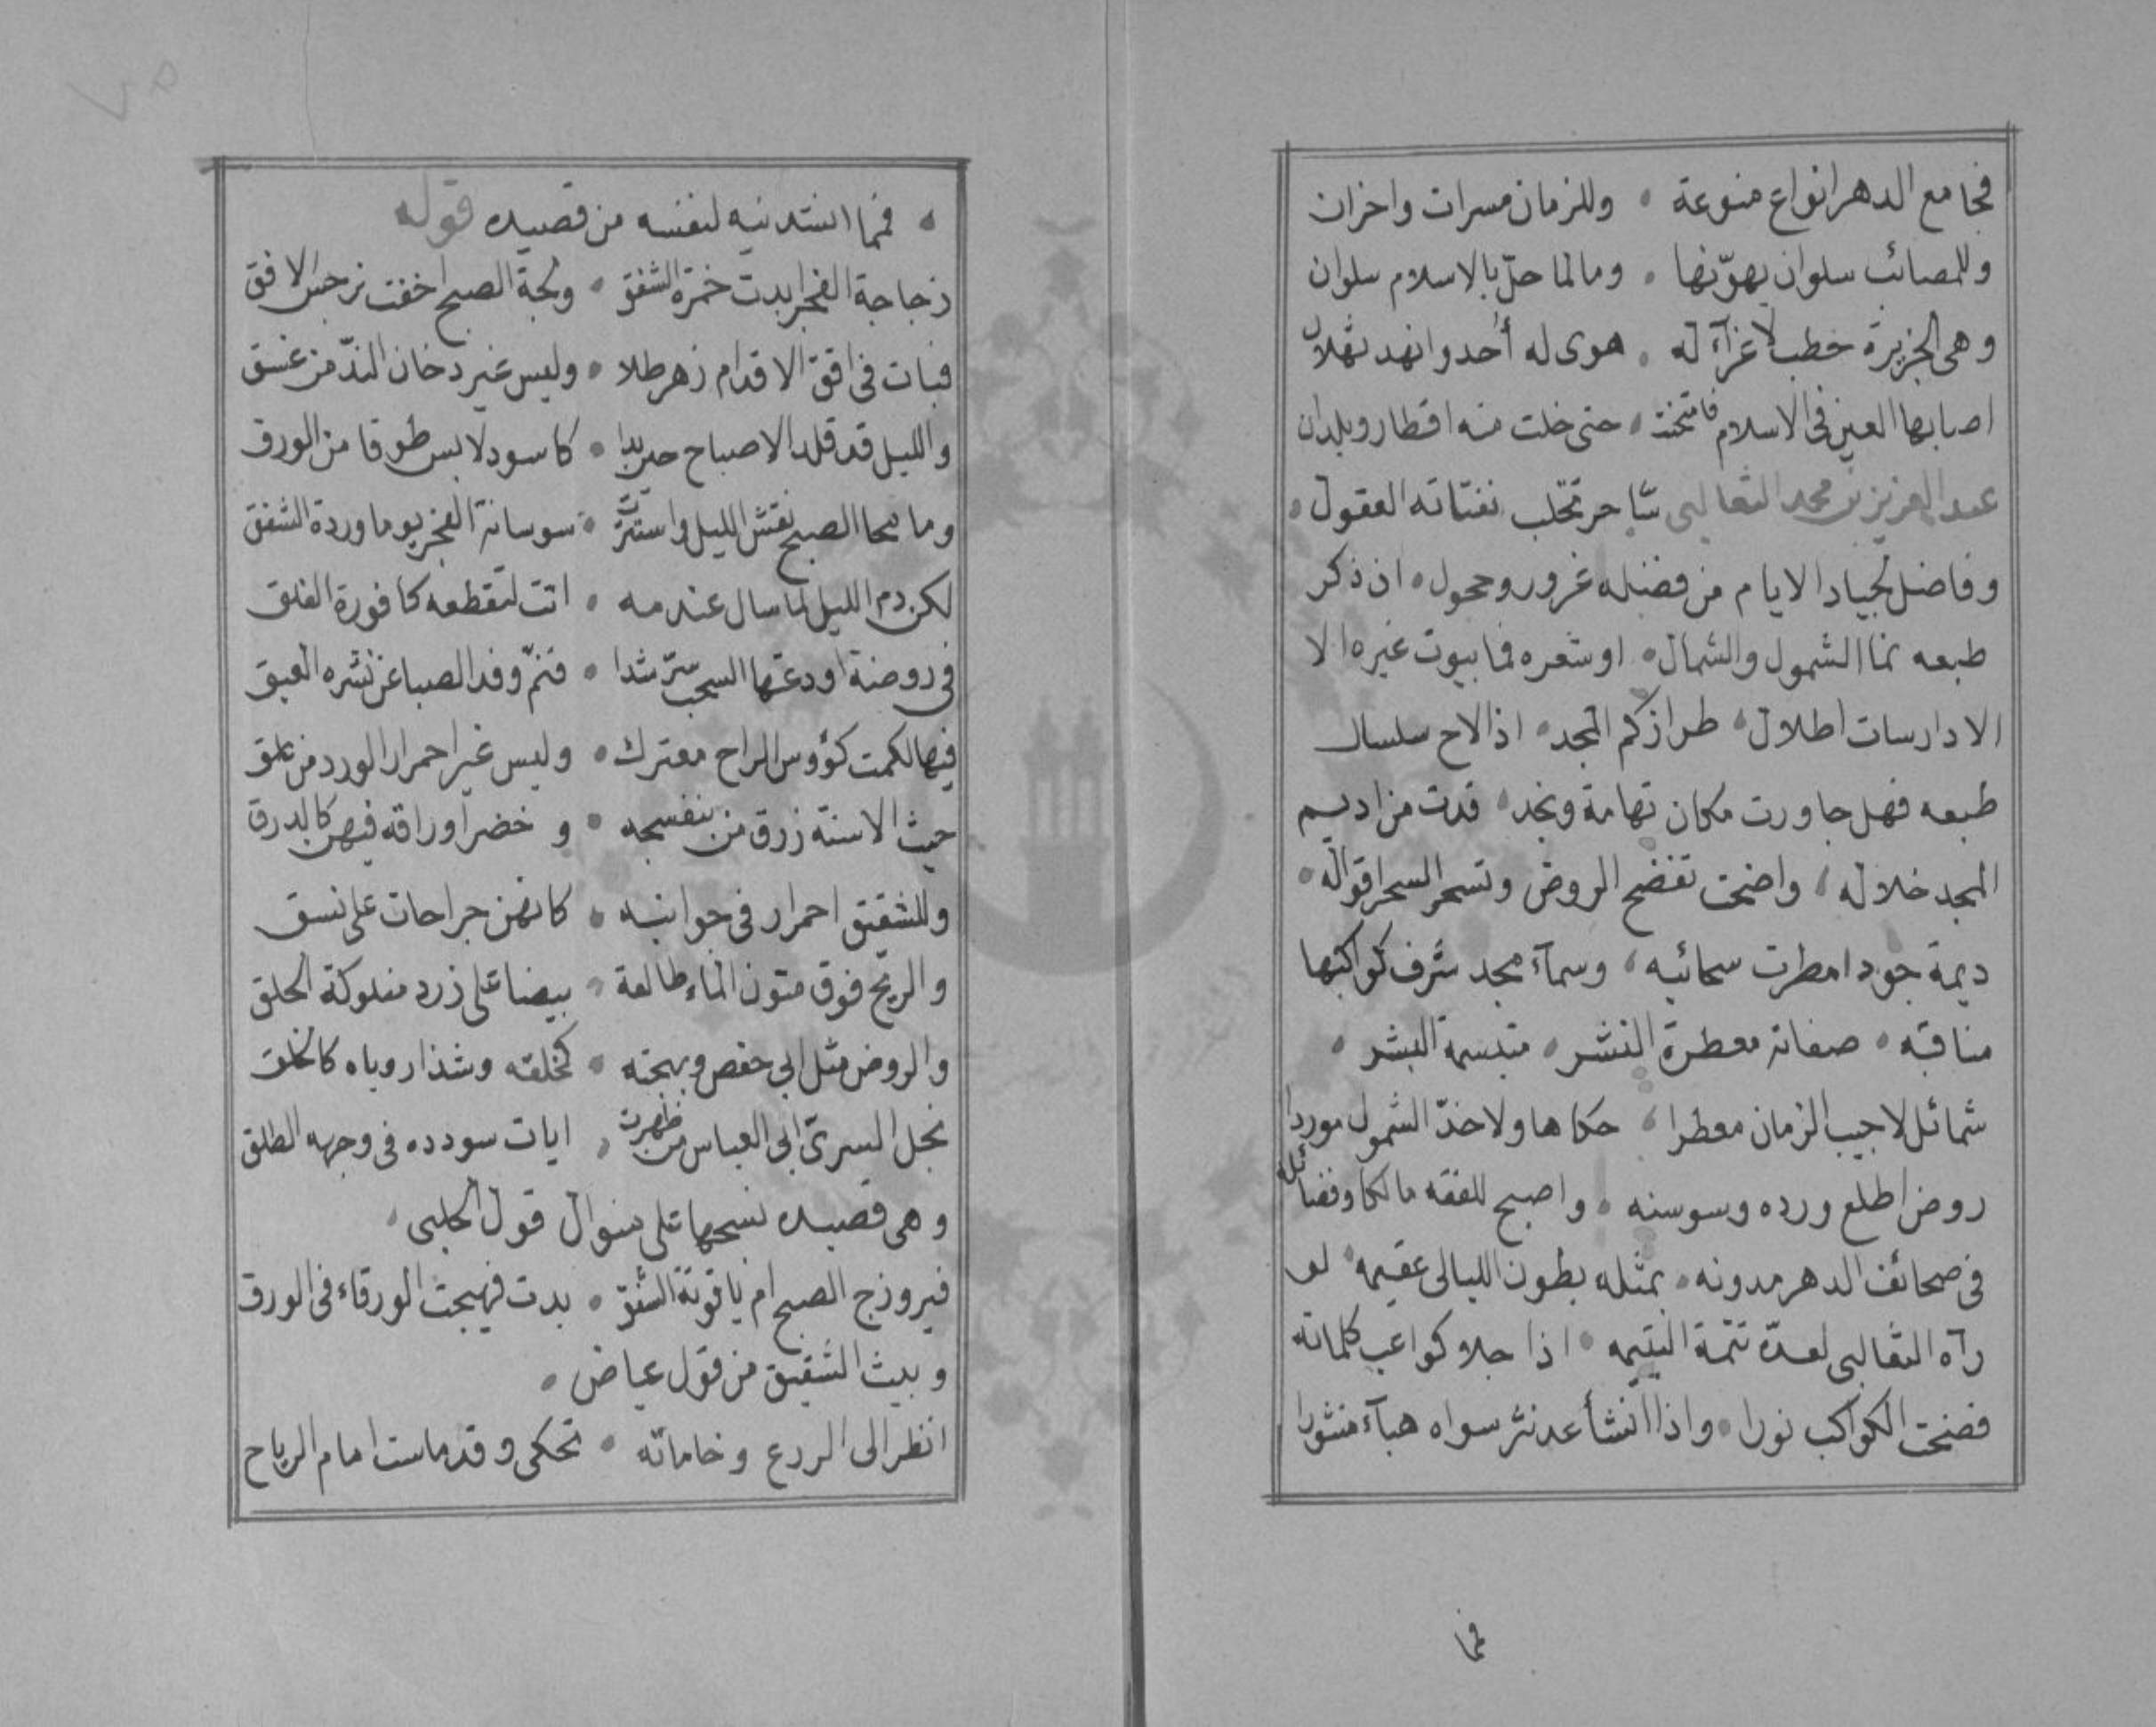 فجامع الدهر انواع منوعة • وللزمان مسرات واحزان
وللمصائب سلوان يهوّنها • وما لما حلّ بالاسلام سلوان
وهى الجزيرة خطب لا عزآء له • هوى له أحد وانهد ثهلان
اصابها العين فى الاسلام فامتحنت • حتى خلت منه اقطار وبلدان
عبد العزيز بن محمد الثعالبى ساحر تخلب نفثاته العقول •
وفاضل لجياد الايام من فضله غرور وحجول • ان ذكر
طبعه نما الشمول والشمال • او شعره فما بيوت غيره الا
الا دارسات اطلال • طراز كم المجد • اذا لاح سلسال
طبعه فهل جاورت مكان تهامة ونجد • قدت من اديم
المجد خلاله • واضحت تفضح الروض وتسحر السحر اقواله •
ديمة جود امطرت سحائبه • وسمآء مجد شرف كواكبها
مناقبه • صفاته معطرة النشر • متبسمة البشر •
شمائل لا جيب الزمان معطرا • حكاها ولا خدّ الشمول موردا
روض اطلع ورده وسوسنه • واصبح للفقه مالكا وفضائله
فى صحائف الدهر مدونه • بمثله بطون الليالى عقيمه • لو
رآه الثعالبى لعدّه تتمة اليتيمه • اذا جلا كواعب كلماته
فضحت الكواكب نورا • واذا انشأ عد نثر سواه هبآء منثورا
فما
• فمما انشدنيه لنفسه من قصيده قوله
زجاجة الفجر ابدت خمرة الشفق • ولجة الصبح اخفت نرجس الافق
فبات فى افق الاقدام زهر طلا • وليس غير دخان الندّ من غسق
والليل قد قلد الاصباح حين بدا • كاسود لابس طوقا من الورق
وما محا الصبح نقش الليل واستترت • سوسانة الفجر يوما وردة الشفق
لكن دم الليل لما سال عندمه • اتت لتقطعه كافورة الفلق
فى روضة اودعتها السحب سرّ شذا • فنمّ وفد الصبا عن نشره العبق
فيها لكمت كؤوس الراح معترك • وليس غير احمرار الورد من علق
حيث الاسنة زرق من بنفسجه • وخضر اوراقه فيهن كالدرق
وللشقيق احمرار فى جوانبه • كانهن جراحات على نسق
والريح فوق متون الماء طالعة • بيضا على زرد مفلوكة الحلق
والروض مثل ابى حفص وبهجته • كخلقه وشذا روياه كالخلق
نجل السرىّ ابى العباس من ظهرت • ايات سودده فى وجهه الطلق
وهى قصيده نسجها على منوال قول الحلبى •
فيروزج الصبح ام ياقوتة الشفق • بدت فهيجت الورقاء فى الورق
وبيت الشقيق من قول عياض •
انظر الى الزرع وخاماته • تحكى وقد ماست امام الرياح